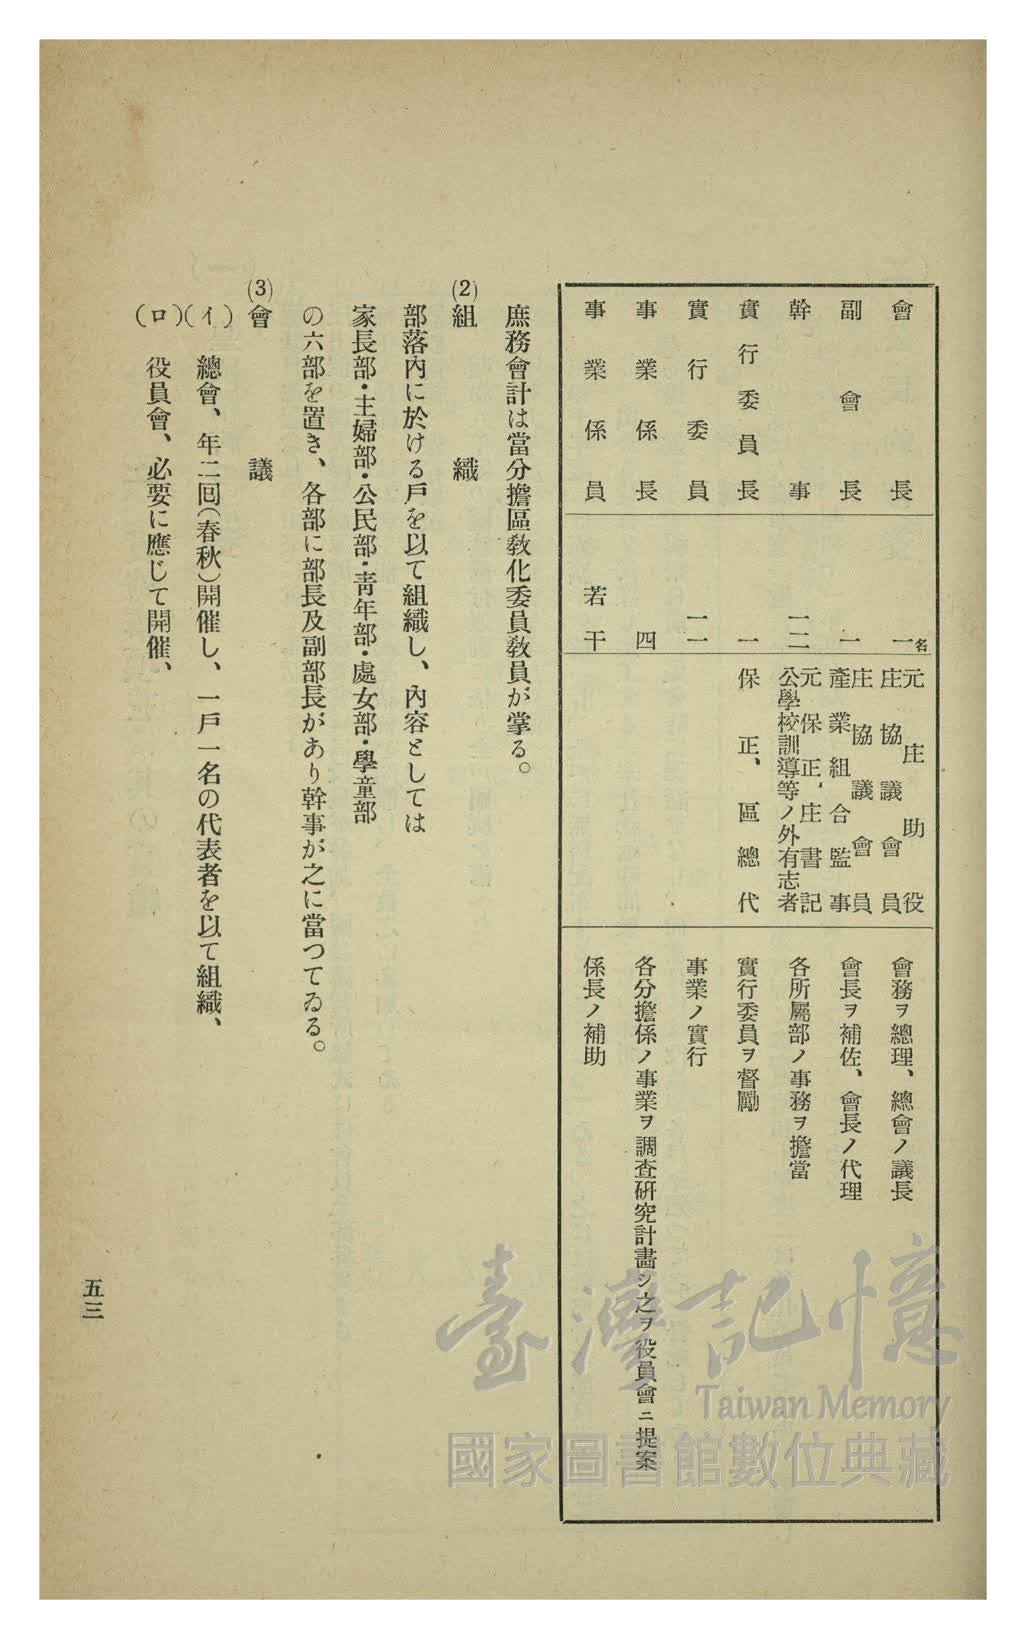 會長 一名 元庄助役 庄協議會員 會務ヲ總理、總會ノ議長
副會長 一 庄協議會員 產業組合監事 會長ヲ補佐、會長ノ代理
幹事 一二 元保正、庄書記 公學校訓導等ノ外有志者 各所屬部ノ事務ヲ擔當
實行委員長 一 保正、區總代 實行委員ヲ督勵
實行委員 一一 事業ノ實行
事業係長 四 各分擔係ノ事業ヲ調查硏究計畫シ之ヲ役員會ニ提案
事業係員 若干 係長ノ補助
庶務會計は當分擔區敎化委員敎員が掌る。
(2)組織
部落內に於ける戶を以て組織し、內容としては
家長部・主婦部・公民部・靑年部・處女部・學童部
の六部を置き、各部に部長及副部長があり幹事が之に當つてゐる。
(3)會議
(イ) 總會、年二囘(春秋)開催し、一戶一名の代表者を以て組織、
(ロ) 役員會、必要に應じて開催、
五三
臺灣記憶
Taiwan Memory
國家圖書館數位典藏